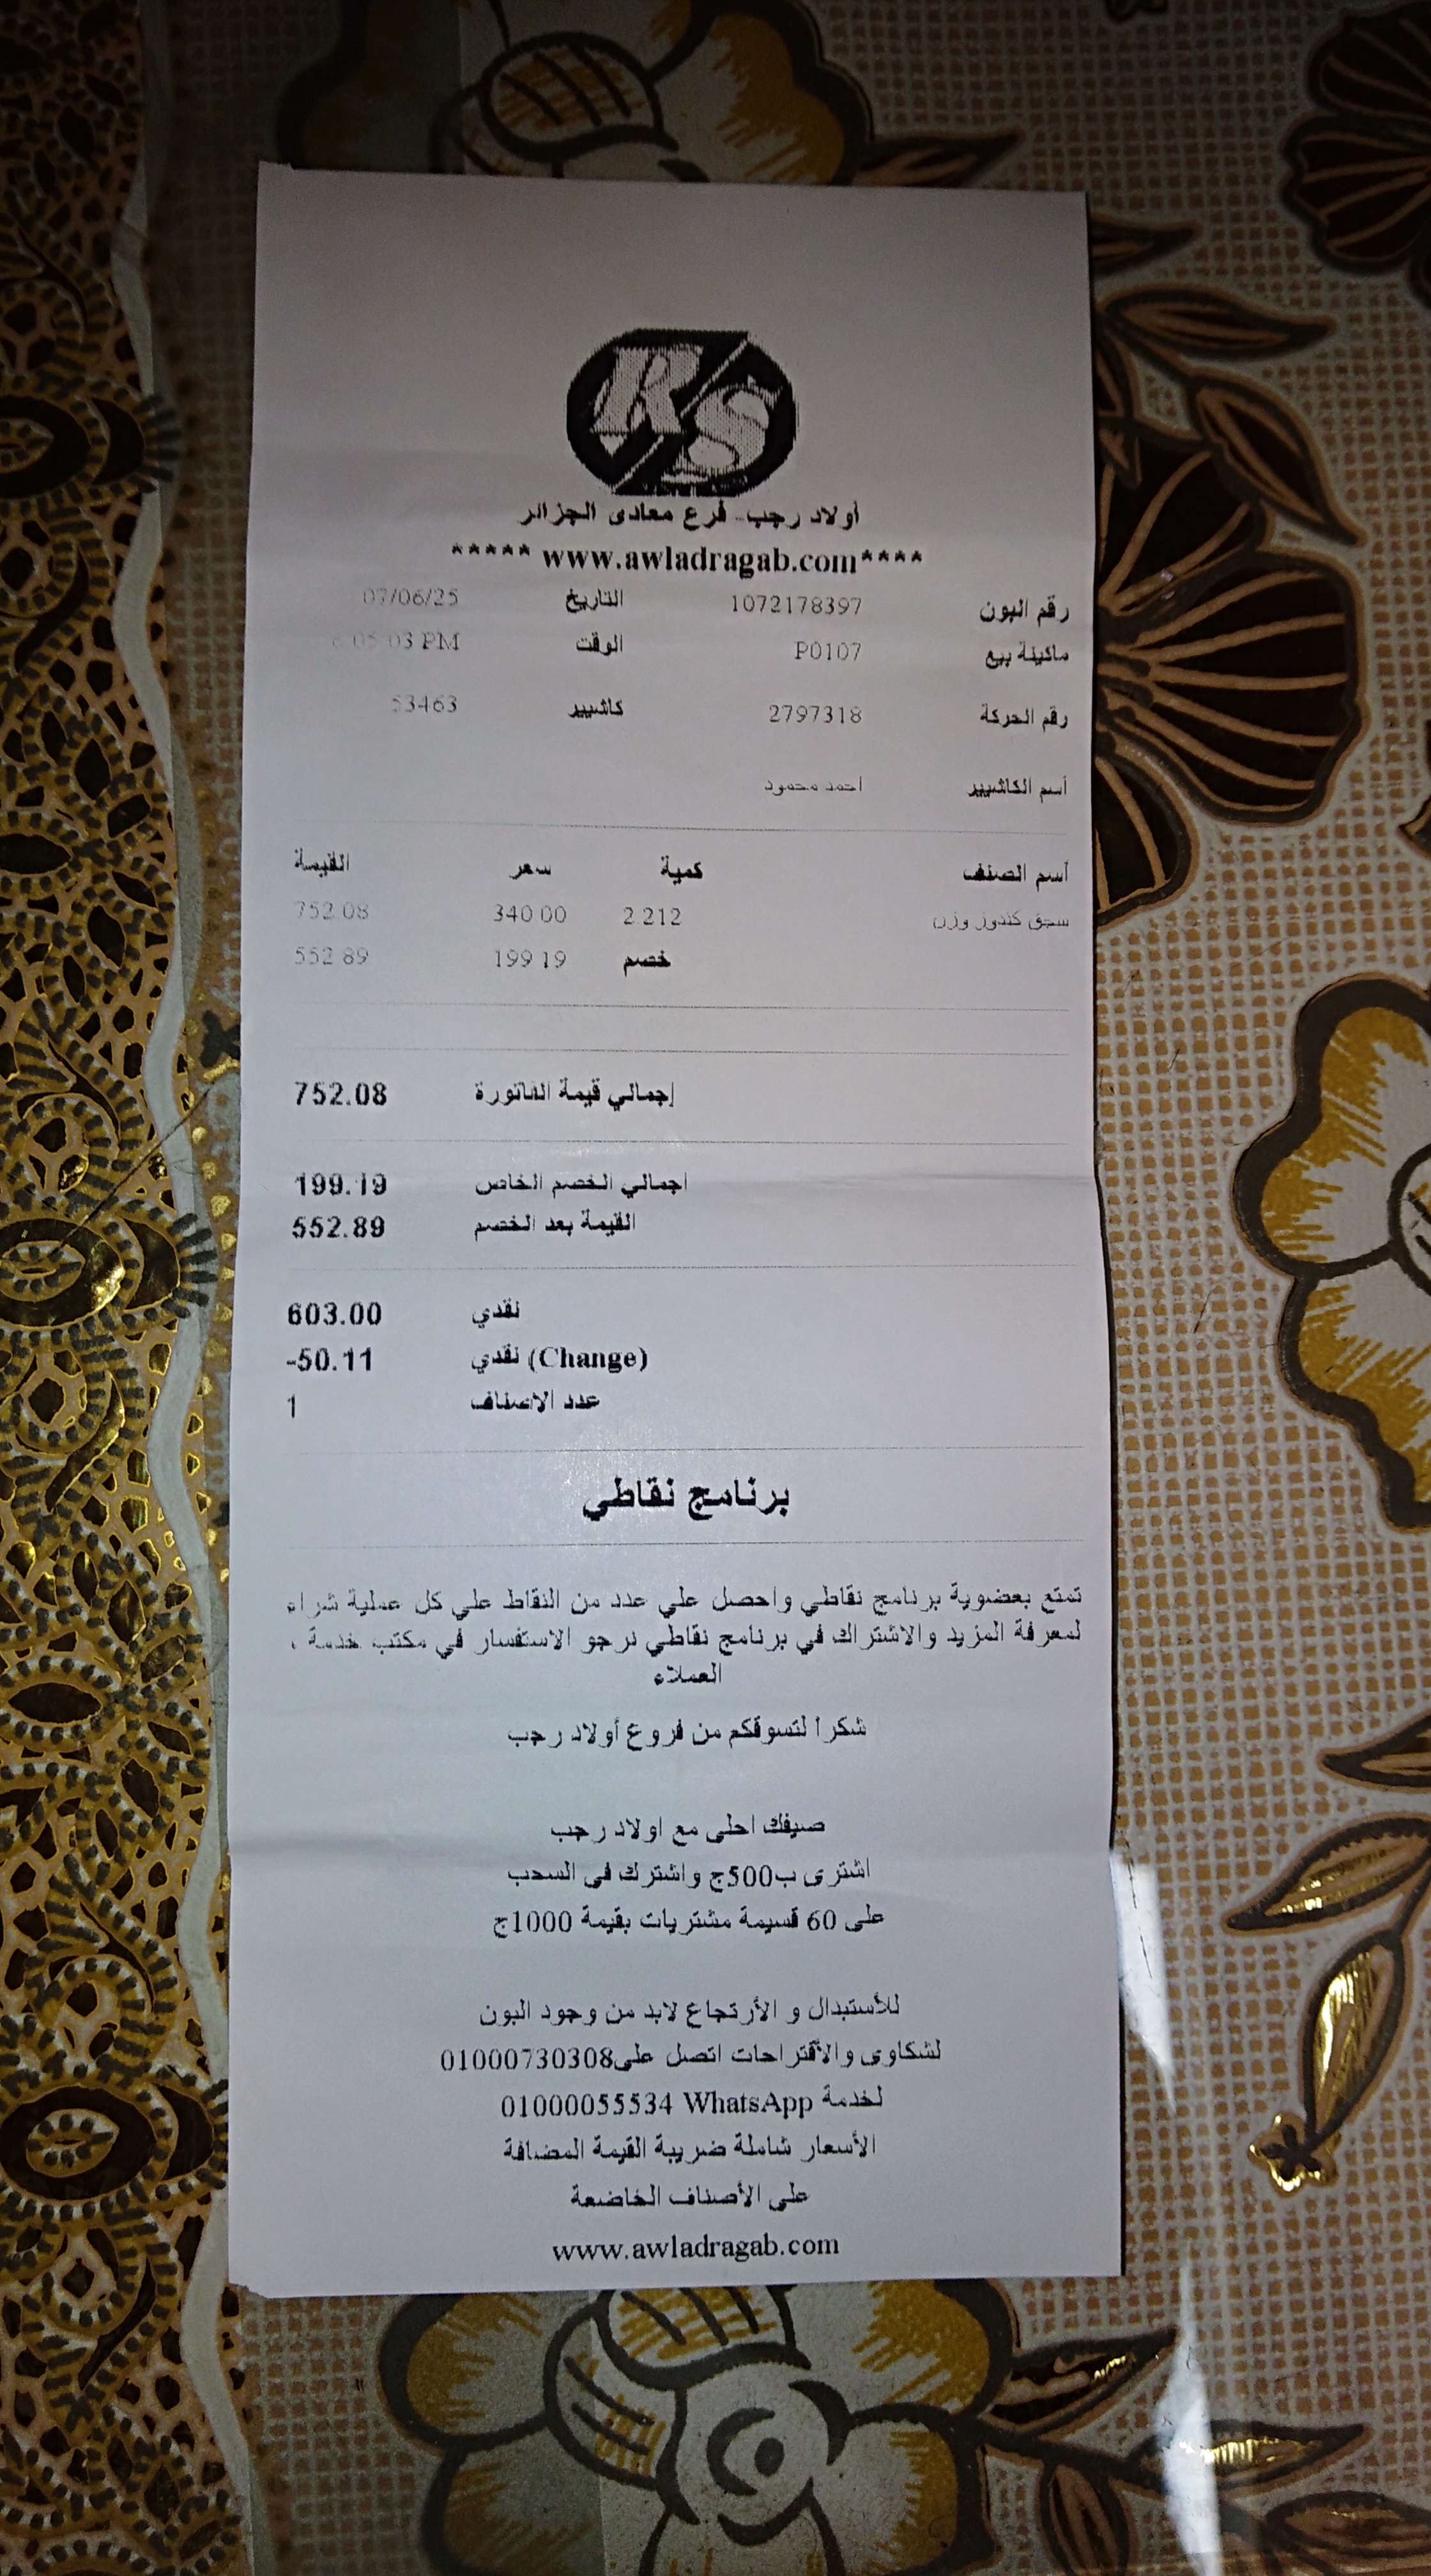 RS
أولاد رجب- فرع معادى الجزائر
***** www.awladragab.com****
رقم البون 1072178397 التاريخ 07/06/25
ماكينة بيع P0107 الوقت 6:05:03 PM
رقم الحركة 2797318 كاشيير 53463
أسم الكاشيير احمد محمود
أسم الصنف كمية سعر القيمة
سجق كندوز وزن 2.212 340.00 752.08
خصم 199.19 552.89
إجمالي قيمة الفاتورة 752.08
اجمالي الخصم الخاص 199.19
القيمة بعد الخصم 552.89
نقدي 603.00
نقدي (Change) -50.11
عدد الاصناف 1
برنامج نقاطي
تمتع بعضوية برنامج نقاطي واحصل علي عدد من النقاط علي كل عملية شراء
لمعرفة المزيد والاشتراك في برنامج نقاطي نرجو الاستفسار في مكتب خدمة
العملاء
شكرا لتسوقكم من فروع أولاد رجب
صيفك احلى مع اولاد رجب
اشترى ب500ج واشترك فى السحب
على 60 قسيمة مشتريات بقيمة 1000ج
للأستبدال و الأرتجاع لابد من وجود البون
لشكاوى والأقتراحات اتصل على01000730308
لخدمة WhatsApp 01000055534
الأسعار شاملة ضريبة القيمة المضافة
على الأصناف الخاضعة
www.awladragab.com